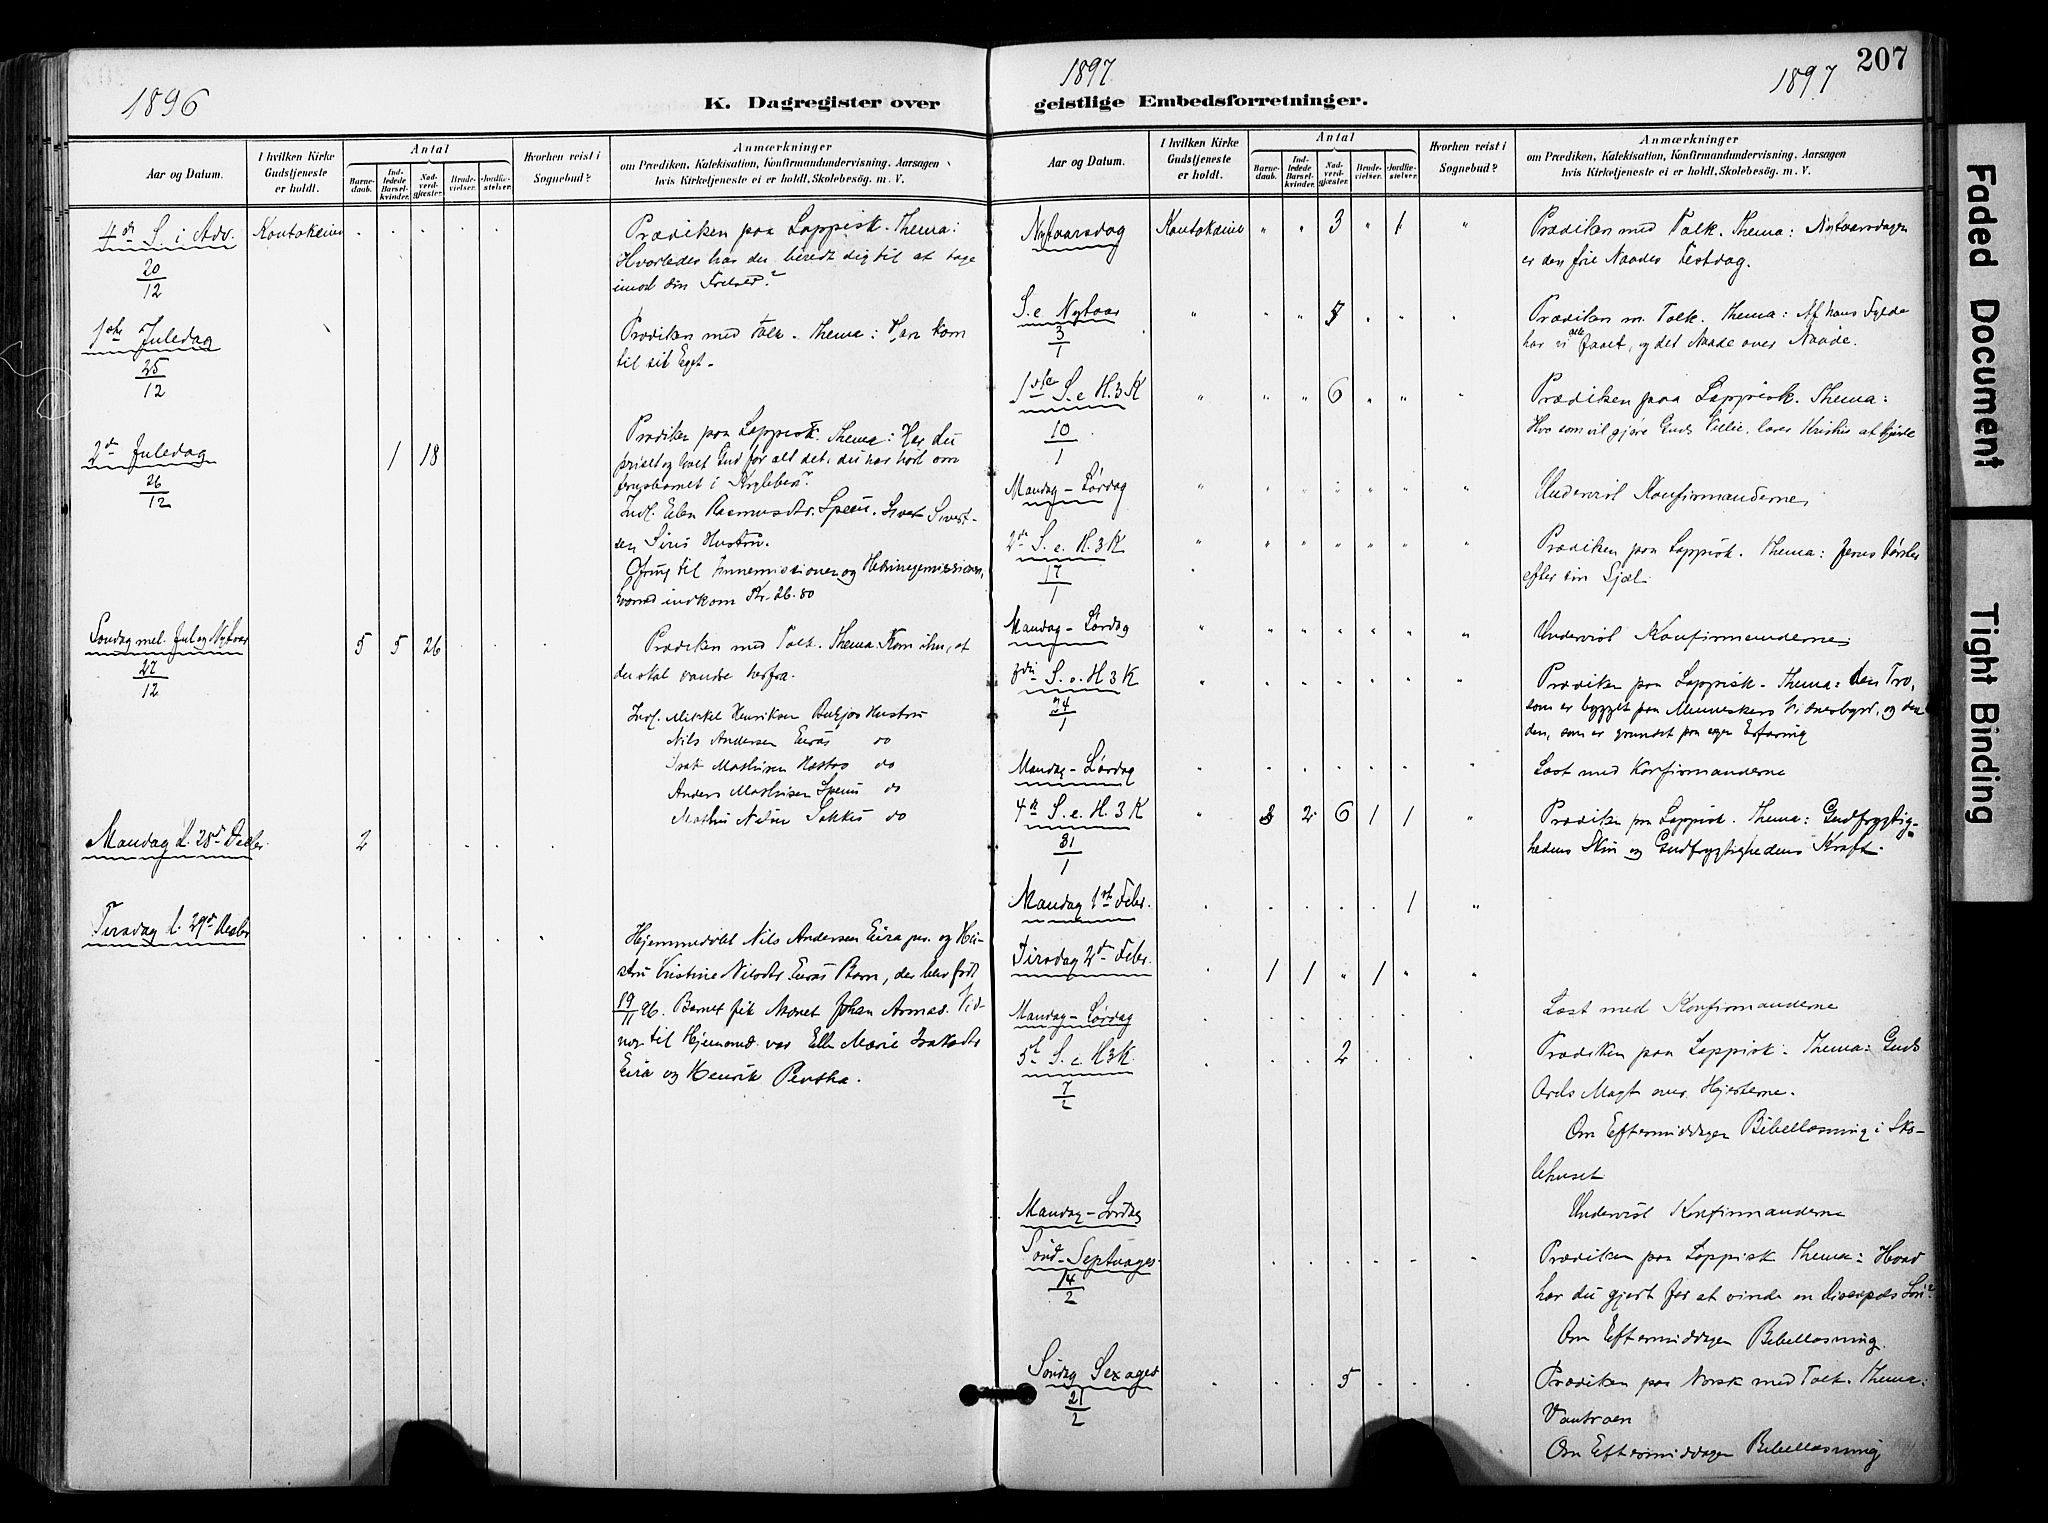 1896
K. Dagregister over
Aar og Datum.
I hvilken Kirke Gudstjeneste er holdt.
Antal
Barnedaab.
Indledede Barselkvinder.
Nadverdgjæster.
Brudevielser.
Jordfæstelser.
Hvorhen reist i Sognebud?
Anmærkninger
om Prædiken, Katekisation, Konfirmandundervisning, Aarsagen
hvis Kirketjeneste ei er holdt, Skolebesøg. m. V.
4de S. i Adv. Koutokeino
Prædiken paa Lappisk. Thema:
Hvorledes har du beredt dig til at tage
imod din Frelser?
20/12
1ste Juledag
Prædiken med Tolk. Thema: Han kom
til sit Eget.
25/12
2den Juledag 1 18
Prædiken paa Lappisk. Thema: Har du
priset og lovet Gud for alt det, du har hørt om
Jesusbarnet i Krybben?
26/12
Indl. Elen Rasmusdtr. Spein. Sivert
Siris Hustru.
Ofring til Innemissionen og Hedningemissionen,
hvorved indkom Kr. 26.80
Søndag mel. Jul og Nytaar 5 5 26
Prædiken med Tolk. Thema: Kom ihu, at
du skal vandre herfra.
27/12
Indl. Mikkel Henriksen Hustru
Nils Andersen Eiras do
Isak Mathisen do
Anders Mathisen Spein do
do
Mandag d. 28de Decbr. 2
Tirsdag d. 29de Decbr
Hjemmedøbt Nils Andersen Eira jun. og Hu-
stru Kristine Nilsdtr Eiras Barn, der blev født
19/11 96. Barnet fik Navnet Johan Armas. Vid-
ner til Hjemmed. var Ellen Marie Isaksdtr
Eira og Henrik Pentha.
1897
1897
207
geistlige Embedsforretninger.
Aar og Datum.
I hvilken Kirke Gudstjeneste er holdt.
Antal
Barnedaab.
Indledede Barselkvinder.
Nadverdgjæster.
Brudevielser.
Jordfæstelser.
Hvorhen reist i Sognebud?
Anmærkninger
om Prædiken, Katekisation, Konfirmandundervisning, Aarsagen
hvis Kirketjeneste ei er holdt, Skolebesøg. m. V.
Nytaarsdag Koutokeino " " 3 " 1 "
Prædiken med Tolk. Thema: Nytaarsdagen
er den frie Naades Festdag.
S. e Nytaar
3/1
Prædiken m. Tolk. Thema: Af hans Fylde
har vi alle faaet, og det Naade over Naade.
1ste S. e H. 3 K " " " 6 " " "
10/1
Prædiken paa Lappisk. Thema:
Hvo som vil gjøre Guds Villie, lærer Kristus at kjende
Mandag - Lørdag
Undervist Konfirmanderne
2den S. e. H. 3 K
17/1
Prædiken paa Lappisk. Thema: Jesus tørster
efter din Sjæl.
Mandag - Lørdag
Undervist Konfirmanderne
3die S. e. H 3 K
24/1
Prædiken paa Lappisk. Thema: Den Tro,
som er bygget paa Menneskers Vidnesbyrd, og den
den, som er grundet paa egen Erfaring
Mandag - Lørdag
Læst med Konfirmanderne
4de S. e. H. 3 K " 3 2 6 1 1
31/1
Prædiken paa Lappisk. Thema: Gudfrygtig-
hedens Skin og Gudfrygtighedens Kraft.
Mandag 1ste Febr. 1 "
Tirsdag 2den Febr. 1 1 " 1 " "
Mandag - Lørdag
Læst med Konfirmanderne
5te S. e H3K. 2
7/2
Prædiken paa Lappisk. Thema: Guds
Ords Magt over Hjerterne.
Om Eftermiddagen Bibellæsning i Sko-
lehuset
Mandag - Lørdag
Undervist Konfirmanderne
Sønd. Septuages.
14/2
Prædiken paa Lappisk Thema: Hvad
har du gjort for at vinde en Livspris Løn?
Om Eftermiddagen Bibellæsning.
Søndag Sexages 5
21/2
Prædiken paa Norsk med Tolk. Thema:
Vantroen
Om Eftermiddagen Bibellæsning
Faded Document
Tight Binding